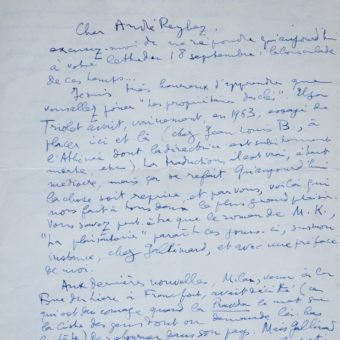 Cher André Reybaz,
excusez-moi de ne répondre qu'aujourd'hui
à votre lettre du 18 septembre : la
de ces temps...
Je suis très heureux d'apprendre que
vous allez jouer "Les propriétaires des clés". Elsa
Triolet avait, vainement, en 1963, essayé de
placer ici et là (chez Jean Louis B., à
l'Athénée dont la directrice est subitement
morte, etc.) La traduction, il est vrai, était
médiocre, mais ça se refait. Qu'aujourd'hui
la chose soit reprise, et par vous, voilà qui
nous fait à tous deux le plus grand plaisir.
Vous savez peut-être que le roman de M. K.,
"La plaisanterie" paraît ces jours-ci, sur mon
instance, chez Gallimard, et avec une préface
de moi.
Aux dernières nouvelles, Milan, venu à la
Foire du Livre à Francfort, avait décidé (ce
qui est du courage quand la Pravda le met sur
la liste des gens dont on demande là-bas
de son pays. Mais Gallimard